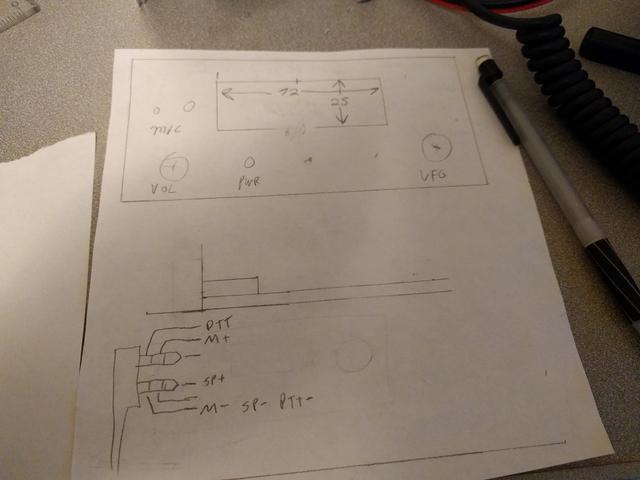 72
25
MIC
VOL
PWR
VFO
PTT
M+
SP+
M- SP- PTT-